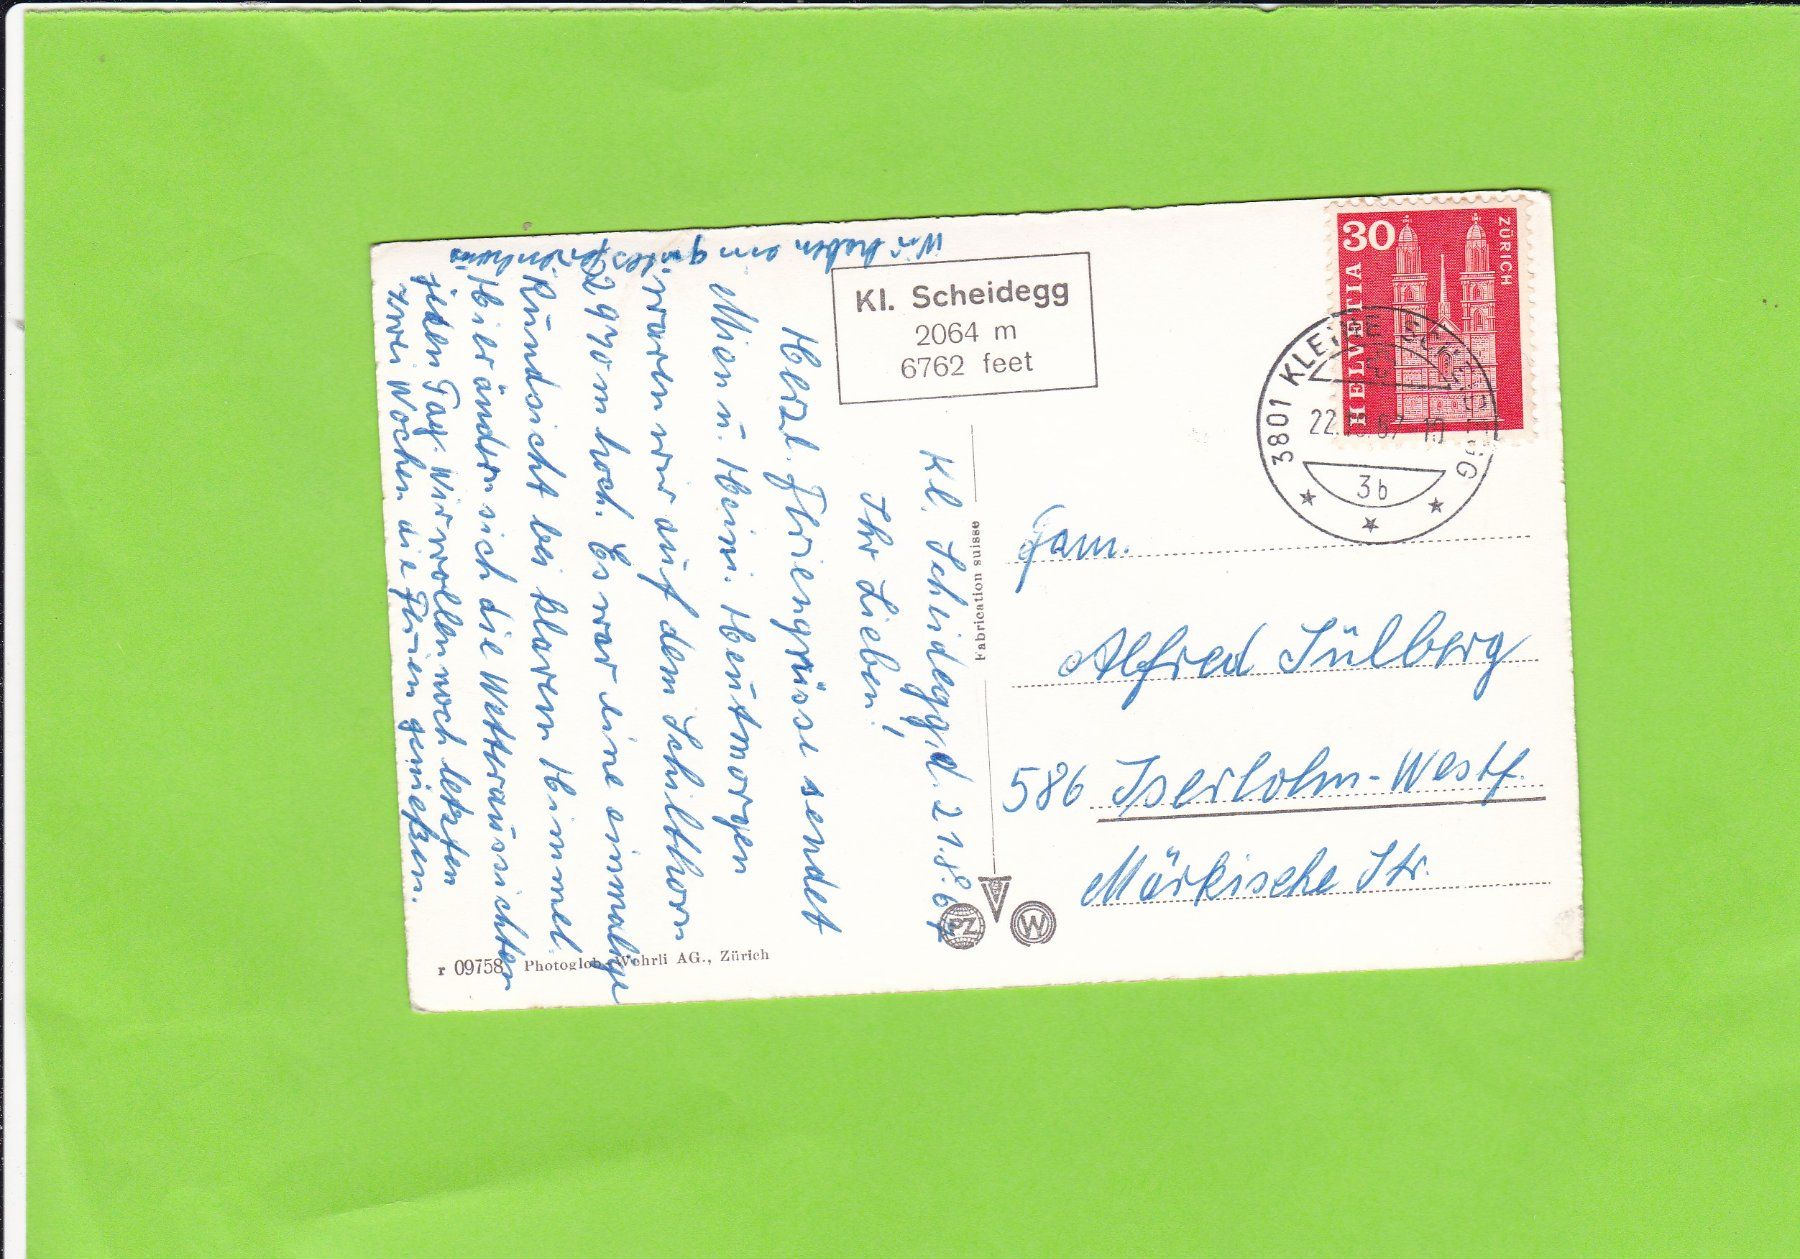 Kl. Scheidegg, d. 21.8.67
Ihr Lieben!
Herzl. Feriengrüsse sendet
Mien u. Heini. Heutmorgen
waren wir auf dem Schilthorn
2970m hoch. Es war eine einmalige
Rundsicht bei klarem Himmel.
Hier ändern sich die Wetteraussichten
jeden Tag. Wir wollen noch letzten
zwei Wochen die Ferien genießen.
Wir haben ein gutes Ferienhaus
Kl. Scheidegg
2064 m
6762 feet
HELVETIA
30
ZÜRICH
3801 KLEINE SCHEIDEGG
22. 67 - 10
3b
Fabrication suisse
Fam.
Alfred Sülberg
586 Iserlohn-Westf.
Märkische Str.
PZ
W
r 09758 Photoglob-Wehrli AG., Zürich